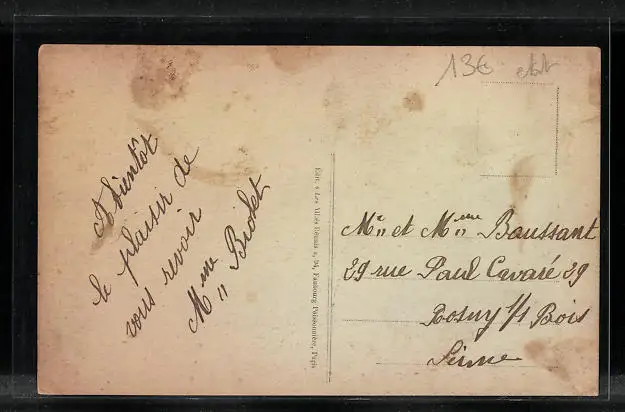 A bientôt
le plaisir de
vous revoir
Mme Biolet
Edit. « Les Alliés Réunis », 94, Faubourg Poissonnière, Paris
13€
Mr et Mme Baussant
29 rue Paul Cavaré 29
Rosny s/s Bois
Seine